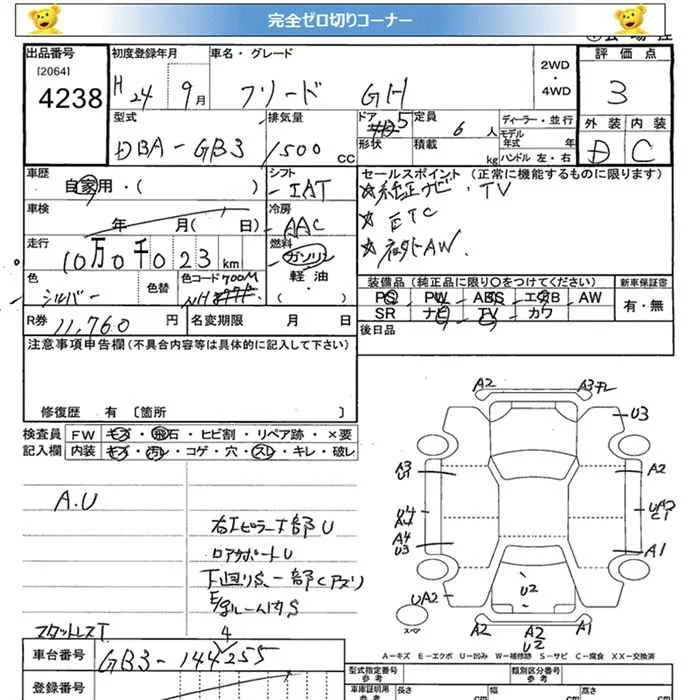 完全ゼロ切りコーナー
出品番号
[2064]
4238
初度登録年月
H 24 年 9月
車名・グレード
フリード GH
2WD
・
4WD
評価点
3
外装 内装
D C
型式
DBA-GB3
排気量
1500 CC
ドア 5
形状
定員
6 人
積載 kg
ディーラー・並行
モデル
年式 年
ハンドル 左・右
車歴
自家用・( )
シフト
IAT
セールスポイント (正常に機能するものに限ります)
☆純正ナビ・TV
☆ETC
☆社外AW.
車検
年 月( 日)
冷房
AAC
走行
10万0千023 km
燃料
ガソリン
軽油
( )
色
シルバー
色替
色コード 700M
NH
装備品 (純正品に限り○をつけてください)
PS・PW・ABS・エアB・AW
SR ナビ・TV・カワ
新車保証書
有・無
R券 11,760 円
名変期限 月 日
後日品
注意事項申告欄(不具合内容等は具体的に記入して下さい)
修復歴 有 [箇所 ]
検査員 FW キズ・飛石・ヒビ割・リペア跡・×要
記入欄 内装 キズ・汚レ・コゲ・穴・スレ・キレ・破レ
A.U
右エピラー下部U
ロアサポートU
下回りS、一部Cアズリ
E/gルーム内S
スタットレスT. 4
A2 A3
U3
A3
U1
A2
U4
A4
C1
A4
U3
A1
UA2
U2
スペア
A2 A2
U2
A1
A-キズ E-エクボ U-凹み W-補修跡 S-サビ C-腐食 XX-交換済
車台番号 GB3-144255
登録番号
型式指定番号
参考
類別区分番号
参考
車庫証明用
参考
長さ cm
幅 cm
高さ cm